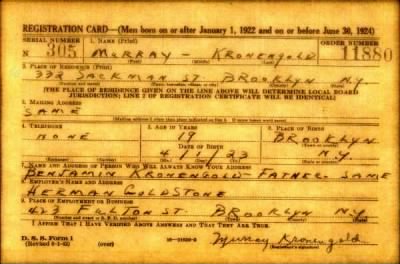 REGISTRATION CARD—(Men born on or after January 1, 1922 and on or before June 30, 1924)
SERIAL NUMBER 1. NAME (Print) ORDER NUMBER
N 305 MURRAY - KRONENGOLD 11880
(First) (Middle) (Last)
2. PLACE OF RESIDENCE (Print)
332 SACKMAN ST. BROOKLYN N.Y.
[THE PLACE OF RESIDENCE GIVEN ON THE LINE ABOVE WILL DETERMINE LOCAL BOARD
JURISDICTION; LINE 2 OF REGISTRATION CERTIFICATE WILL BE IDENTICAL]
3. MAILING ADDRESS
SAME
4. TELEPHONE 5. AGE IN YEARS 6. PLACE OF BIRTH
NONE 19 BROOKLYN
DATE OF BIRTH
4 1 23 N.Y.
7. NAME AND ADDRESS OF PERSON WHO WILL ALWAYS KNOW YOUR ADDRESS
BENJAMIN KRONENGOLD - FATHER SAME
8. EMPLOYER'S NAME AND ADDRESS
HERMAN GOLDSTONE
9. PLACE OF EMPLOYMENT OR BUSINESS
FULTON ST. BROOKLYN N.Y.
I AFFIRM THAT I HAVE VERIFIED ABOVE ANSWERS AND THAT THEY ARE TRUE.
D. S. S. Form 1
(over) Murray Kronengold